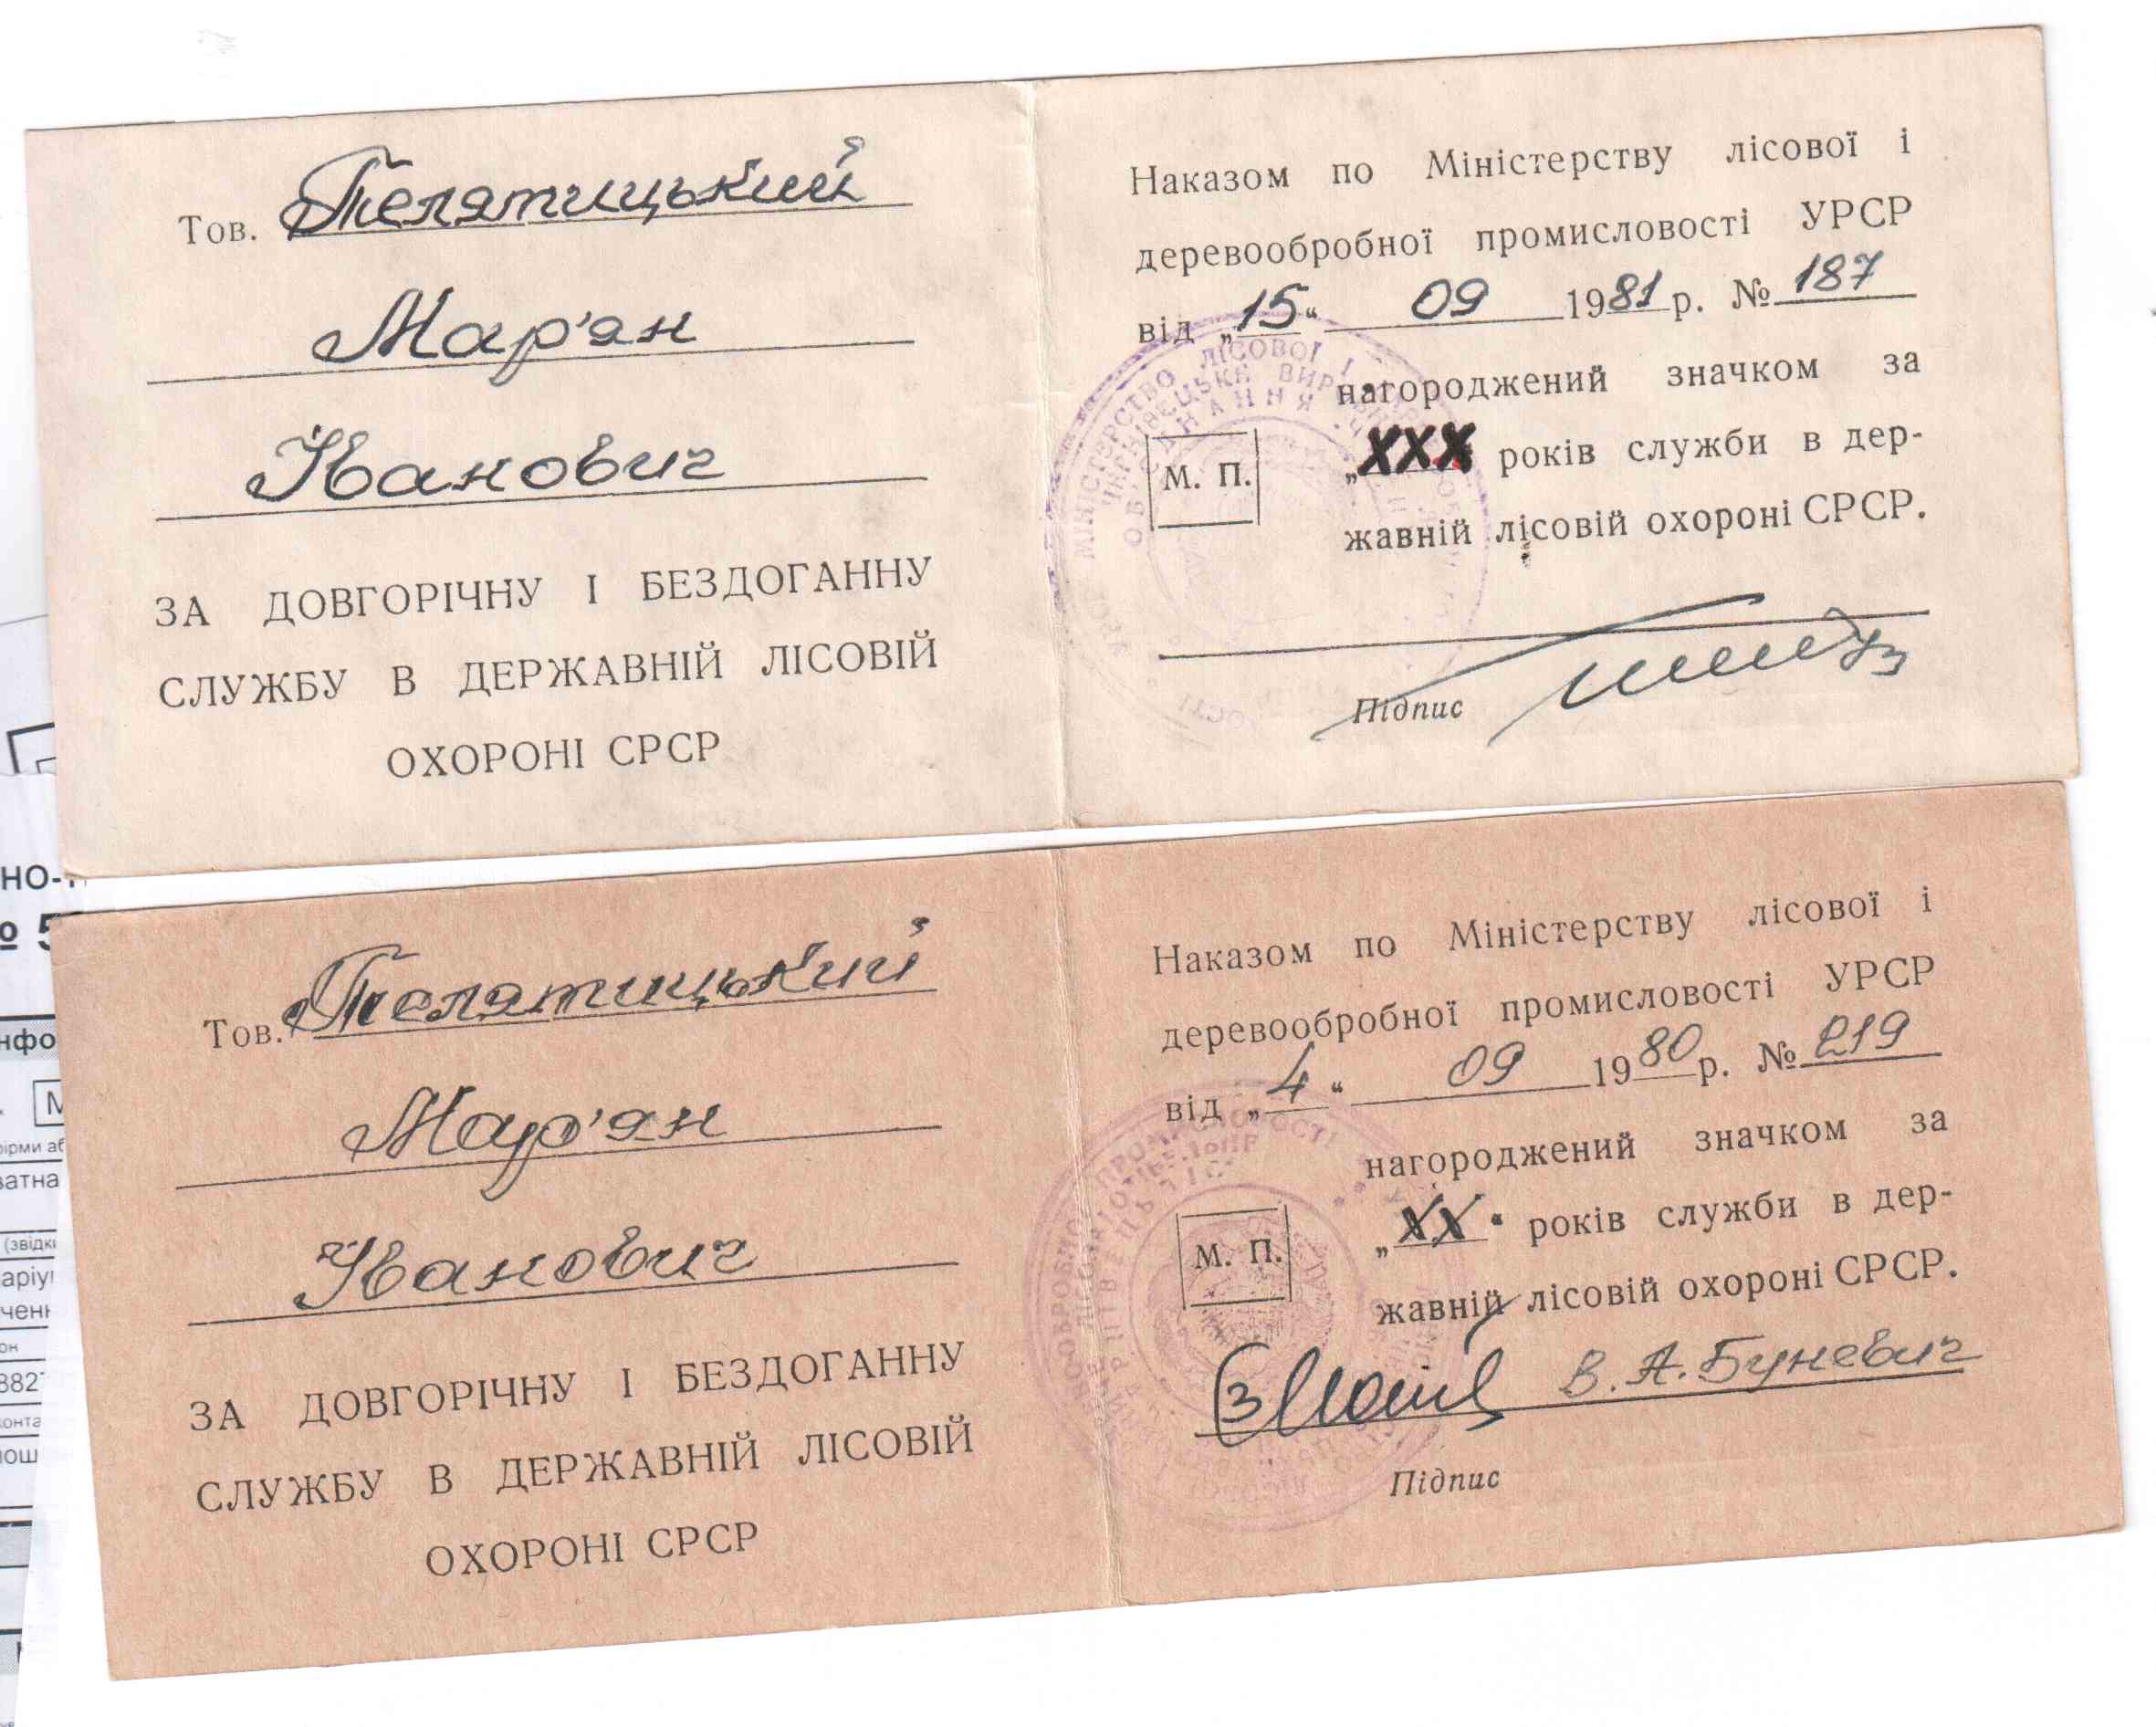 Тов. Телятицький
Мар'ян
Іванович
ЗА ДОВГОРІЧНУ І БЕЗДОГАННУ
СЛУЖБУ В ДЕРЖАВНІЙ ЛІСОВІЙ
ОХОРОНІ СРСР
Наказом по Міністерству лісової і
деревообробної промисловості УРСР
від „15“ 09 1981 р. № 187
нагороджений значком за
„XXX років служби в дер-
М. П.
жавній лісовій охороні СРСР.
Підпис
МІНІСТЕРСТВО ЛІСОВОЇ І
ОБ'ЄДНАННЯ
Тов. Телятицький
Мар'ян
Іванович
ЗА ДОВГОРІЧНУ І БЕЗДОГАННУ
СЛУЖБУ В ДЕРЖАВНІЙ ЛІСОВІЙ
ОХОРОНІ СРСР
Наказом по Міністерству лісової і
деревообробної промисловості УРСР
від „4“ 09 1980 р. № 219
нагороджений значком за
„XX“ років служби в дер-
М. П.
жавній лісовій охороні СРСР.
В. А. Буневич
Підпис
НО-
№ 5
нфо
ірми
ватна
(звідк
882
конта